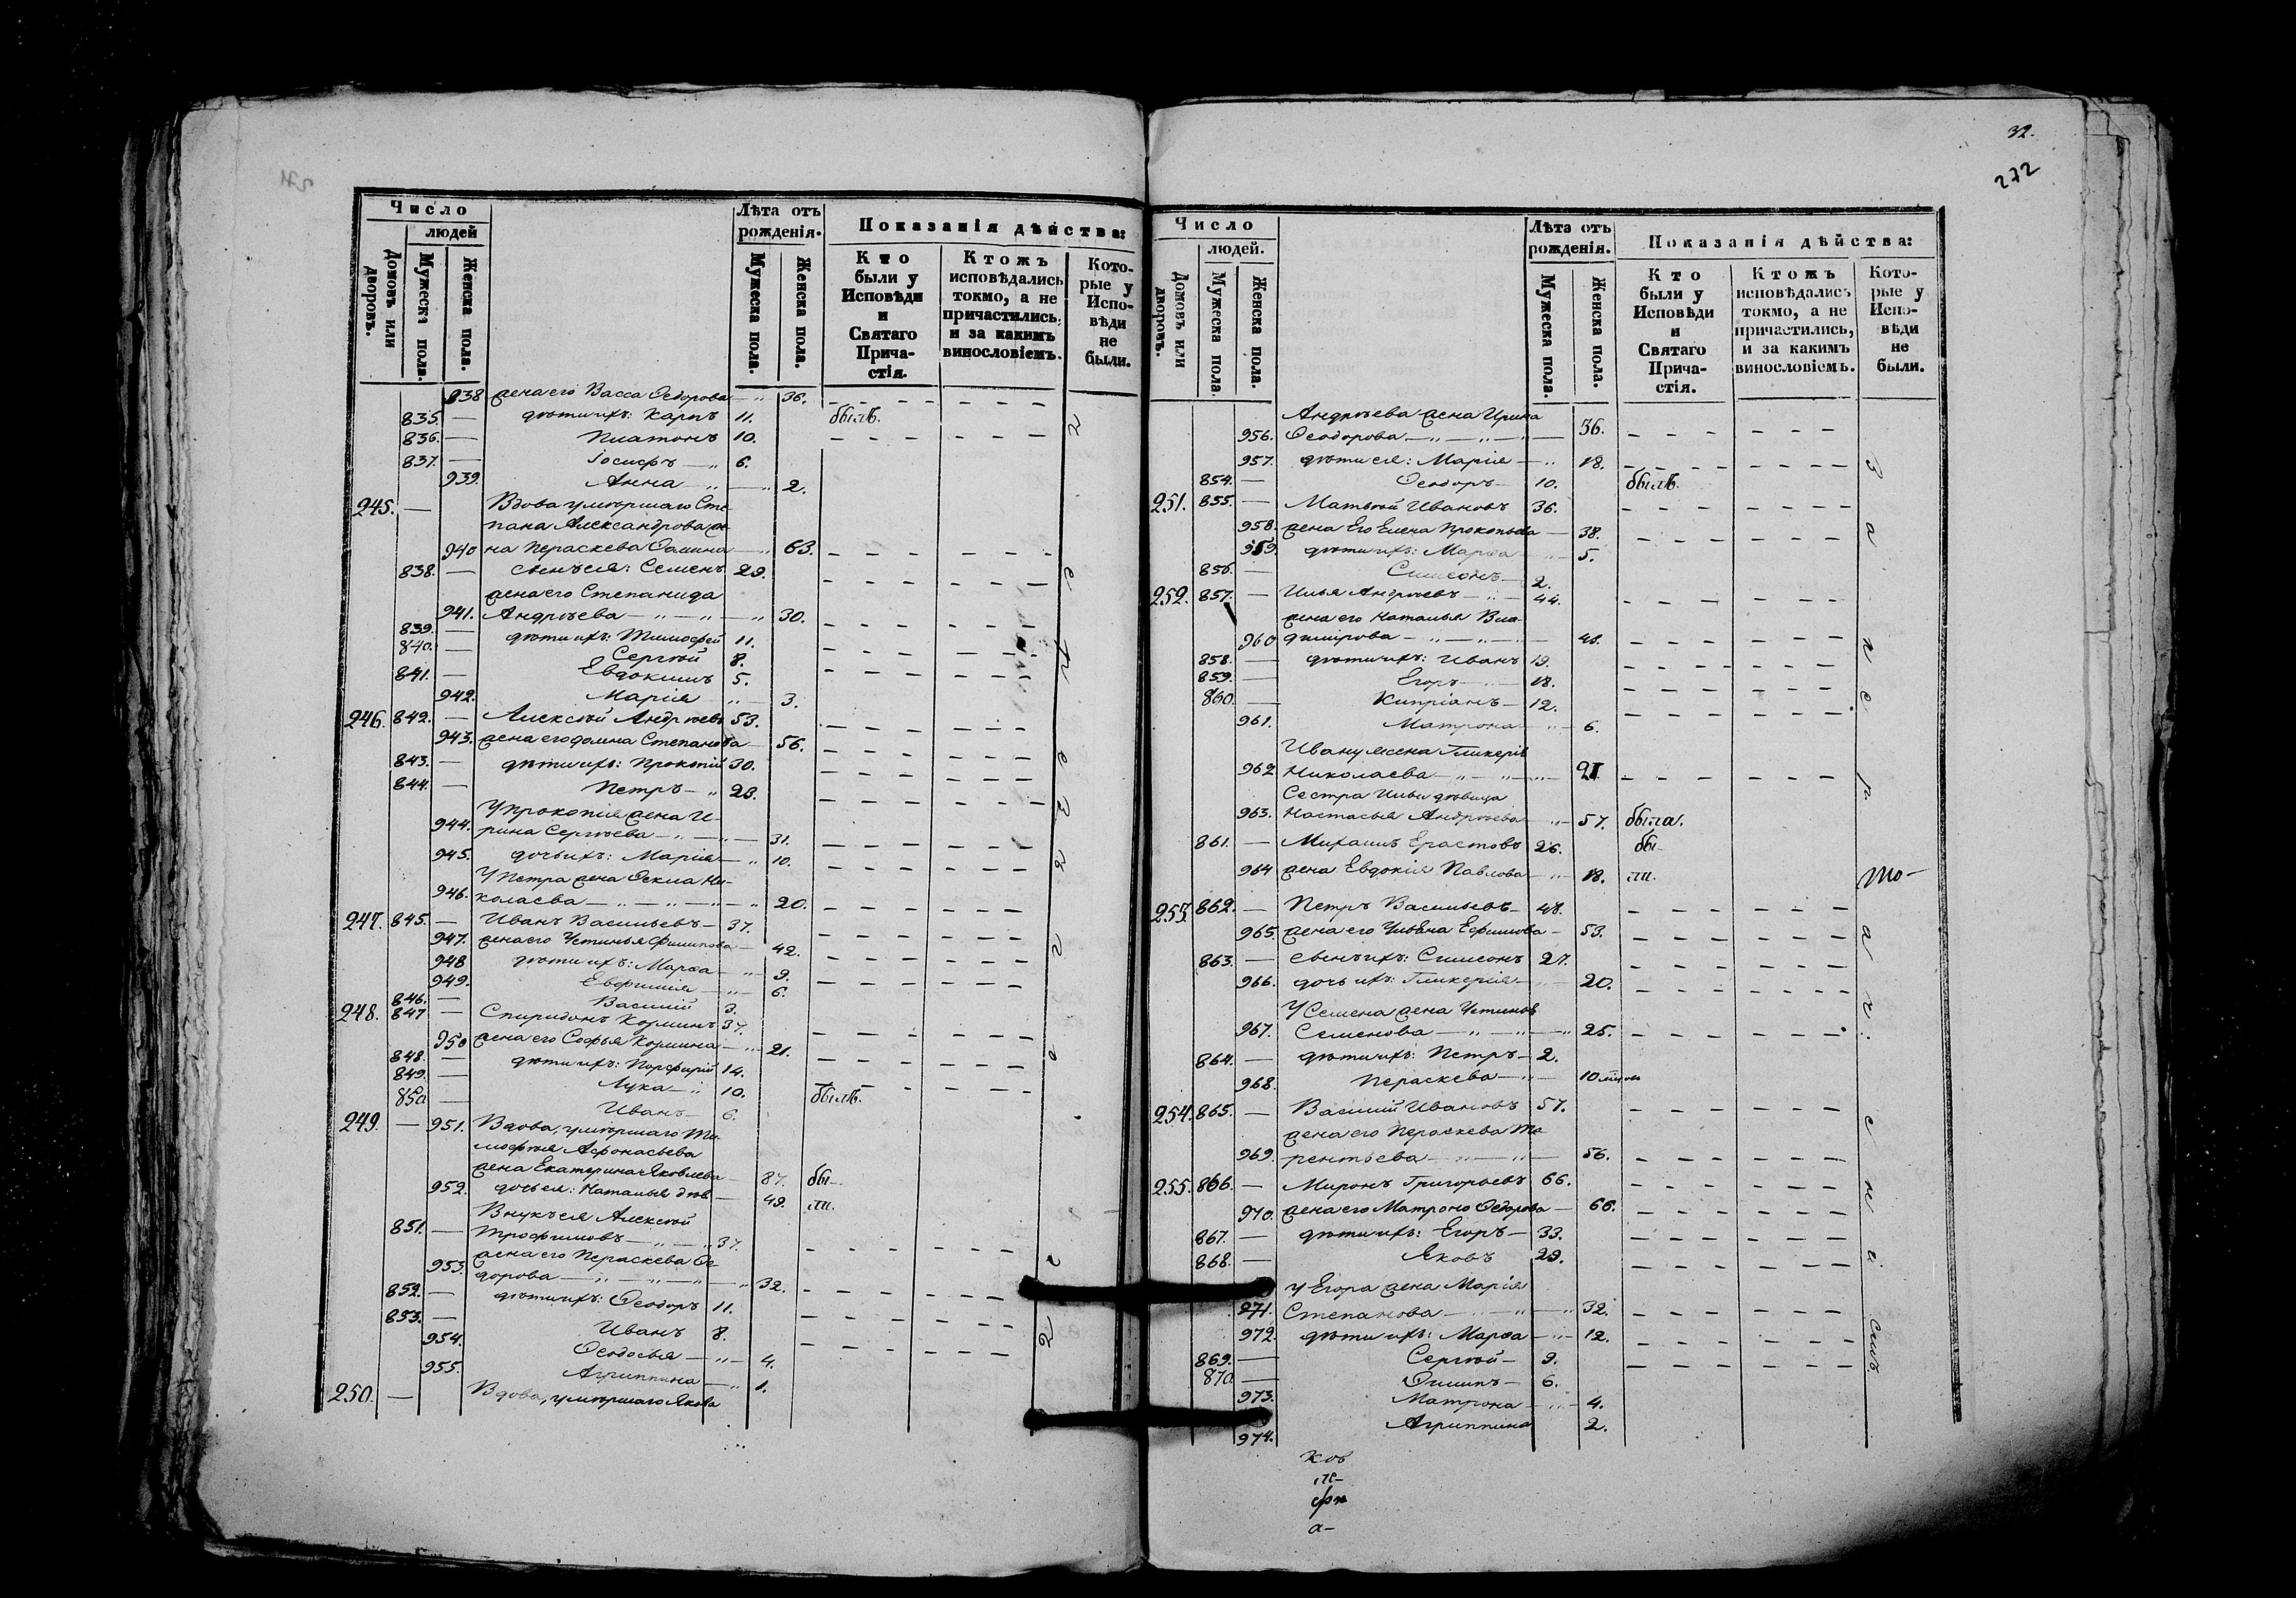 Число
людей
Домовъ или дворовъ.
Мужеска пола.
Женска пола.
Лѣта отъ рожденія.
Мужеска пола.
Женска пола.
Показанія дѣйства:
Кто были у Исповѣди и Святаго Причастія.
Ктожъ исповѣдались токмо, а не причастились, и за какимъ винословіемъ.
Которые у Исповѣди не были.
938 жена его Васса Ѳедорова — 36.
835. — дѣти ихъ: Карпъ 11. былъ.
836. — Платонъ 10.
837. — Іосифъ — 6.
939. Анна — 2.
245. — Вдова умѣршаго Сте-
пана Александрова же-
940 на Пераскева Ѳомина — 63.
838. — сынъ ея: Семенъ 29.
жена его Степанида
941. Андрѣева — 30.
839. — дѣти ихъ: Тимофей 11.
840. — Сергѣй 8.
841. — Евдокимъ 5.
942. Марія — 3.
246. 842. — Алексѣй Андрѣевъ 53.
943. жена его Домна Степанова 56.
843. — дѣти ихъ: Прокопій 30.
844. — Петръ — 23.
У Прокопія жена И-
944. рина Сергѣева — 31.
945. дочь ихъ: Марія — 10.
У Петра жена Ѳекла Ни-
946. колаева — 20.
247. 845. — Иванъ Васильевъ — 37.
947. жена его Устинья Филипова — 42.
948 дѣти ихъ: Марѳа — 9.
949. Евфимія — 6.
846. — Василій 3.
248. 847 — Спиридонъ Корминъ 37.
950 жена его Софья Кормина — 21.
848. — дѣти ихъ: Порфирій 14.
849. — Лука — 10. былъ.
850 — Иванъ — 6.
249. — 951. Вдова, умѣршаго Ти-
мофѣя Афонасьева
жена Екатерина Яковлева 87. бы-
952. дочь ея: Наталья дѣв. — 49. ли.
Внукъ ея Алексѣй
851. — Трофимовъ — 37.
953. жена его Пераскева Ѳе-
дорова — 32.
852. — дѣти ихъ: Ѳеодоръ 11.
853. — Иванъ 8.
954. Ѳеодосья — 4.
955. Агриппина — 1.
250. — Вдова, умѣршаго Якова
32.
272
Число
людей.
Домовъ или дворовъ.
Мужеска пола
Женска пола.
Лѣта отъ рожденія.
Мужеска пола.
Женска пола.
Показанія дѣйства:
Кто были у Исповѣди и Святаго Причастія.
Ктожъ исповѣдались токмо, а не причастились, и за какимъ винословіемъ.
Которые у Исповѣди не были.
Андрѣева жена Ирина
956. Ѳеодорова — 36.
957. дѣти ея: Марія — 18.
854. — Ѳеодоръ — 10. былъ.
251. 855. — Матвѣй Ивановъ 36.
958. жена Его Елена Прокопьева — 38.
959. дѣти ихъ: Марѳа — 5.
856. — Симеонъ — 2.
252. 857. — Илья Андрѣевъ — 44.
жена его Наталья Вла-
960 димірова — 48.
858. — дѣти ихъ: Иванъ 19.
859. — Егоръ — 18.
860. — Кипріанъ — 12.
961. Матрона — 6.
Ивану жена Гликерія
962 Николаева — 21.
Сестра Ильи дѣвица
963. Настасья Андрѣева — 57. была.
861. — Михаилъ Ерастовъ 26. бы-
964 жена Евдокія Павлова — 18. ли.
253. 862. — Петръ Васильевъ — 48.
965. жена его Ульяна Ефимова — 53.
863. — сынъ ихъ: Симеонъ 27.
966. дочь ихъ: Гликерія — 20.
У Семена жена Устинья
967. Семенова — 25.
864. — дѣти ихъ: Петръ — 2.
968. Пераскева — 10
254. 865. — Василий Ивановъ 57.
жена его Пераскева Те-
969. рентьева — 56.
255. 866. — Миронъ Григорьевъ 66.
970. жена его Матрона Ѳедорова — 66.
867. — дѣти ихъ: Егоръ — 33.
868. — Яковъ 29.
у Егора жена Марія
971. Степанова — 32.
972. дѣти ихъ: Марѳа — 12.
869. — Сергѣй — 9.
870 — Осипъ — 6.
973. Матрона — 4.
974. Агриппина 2.